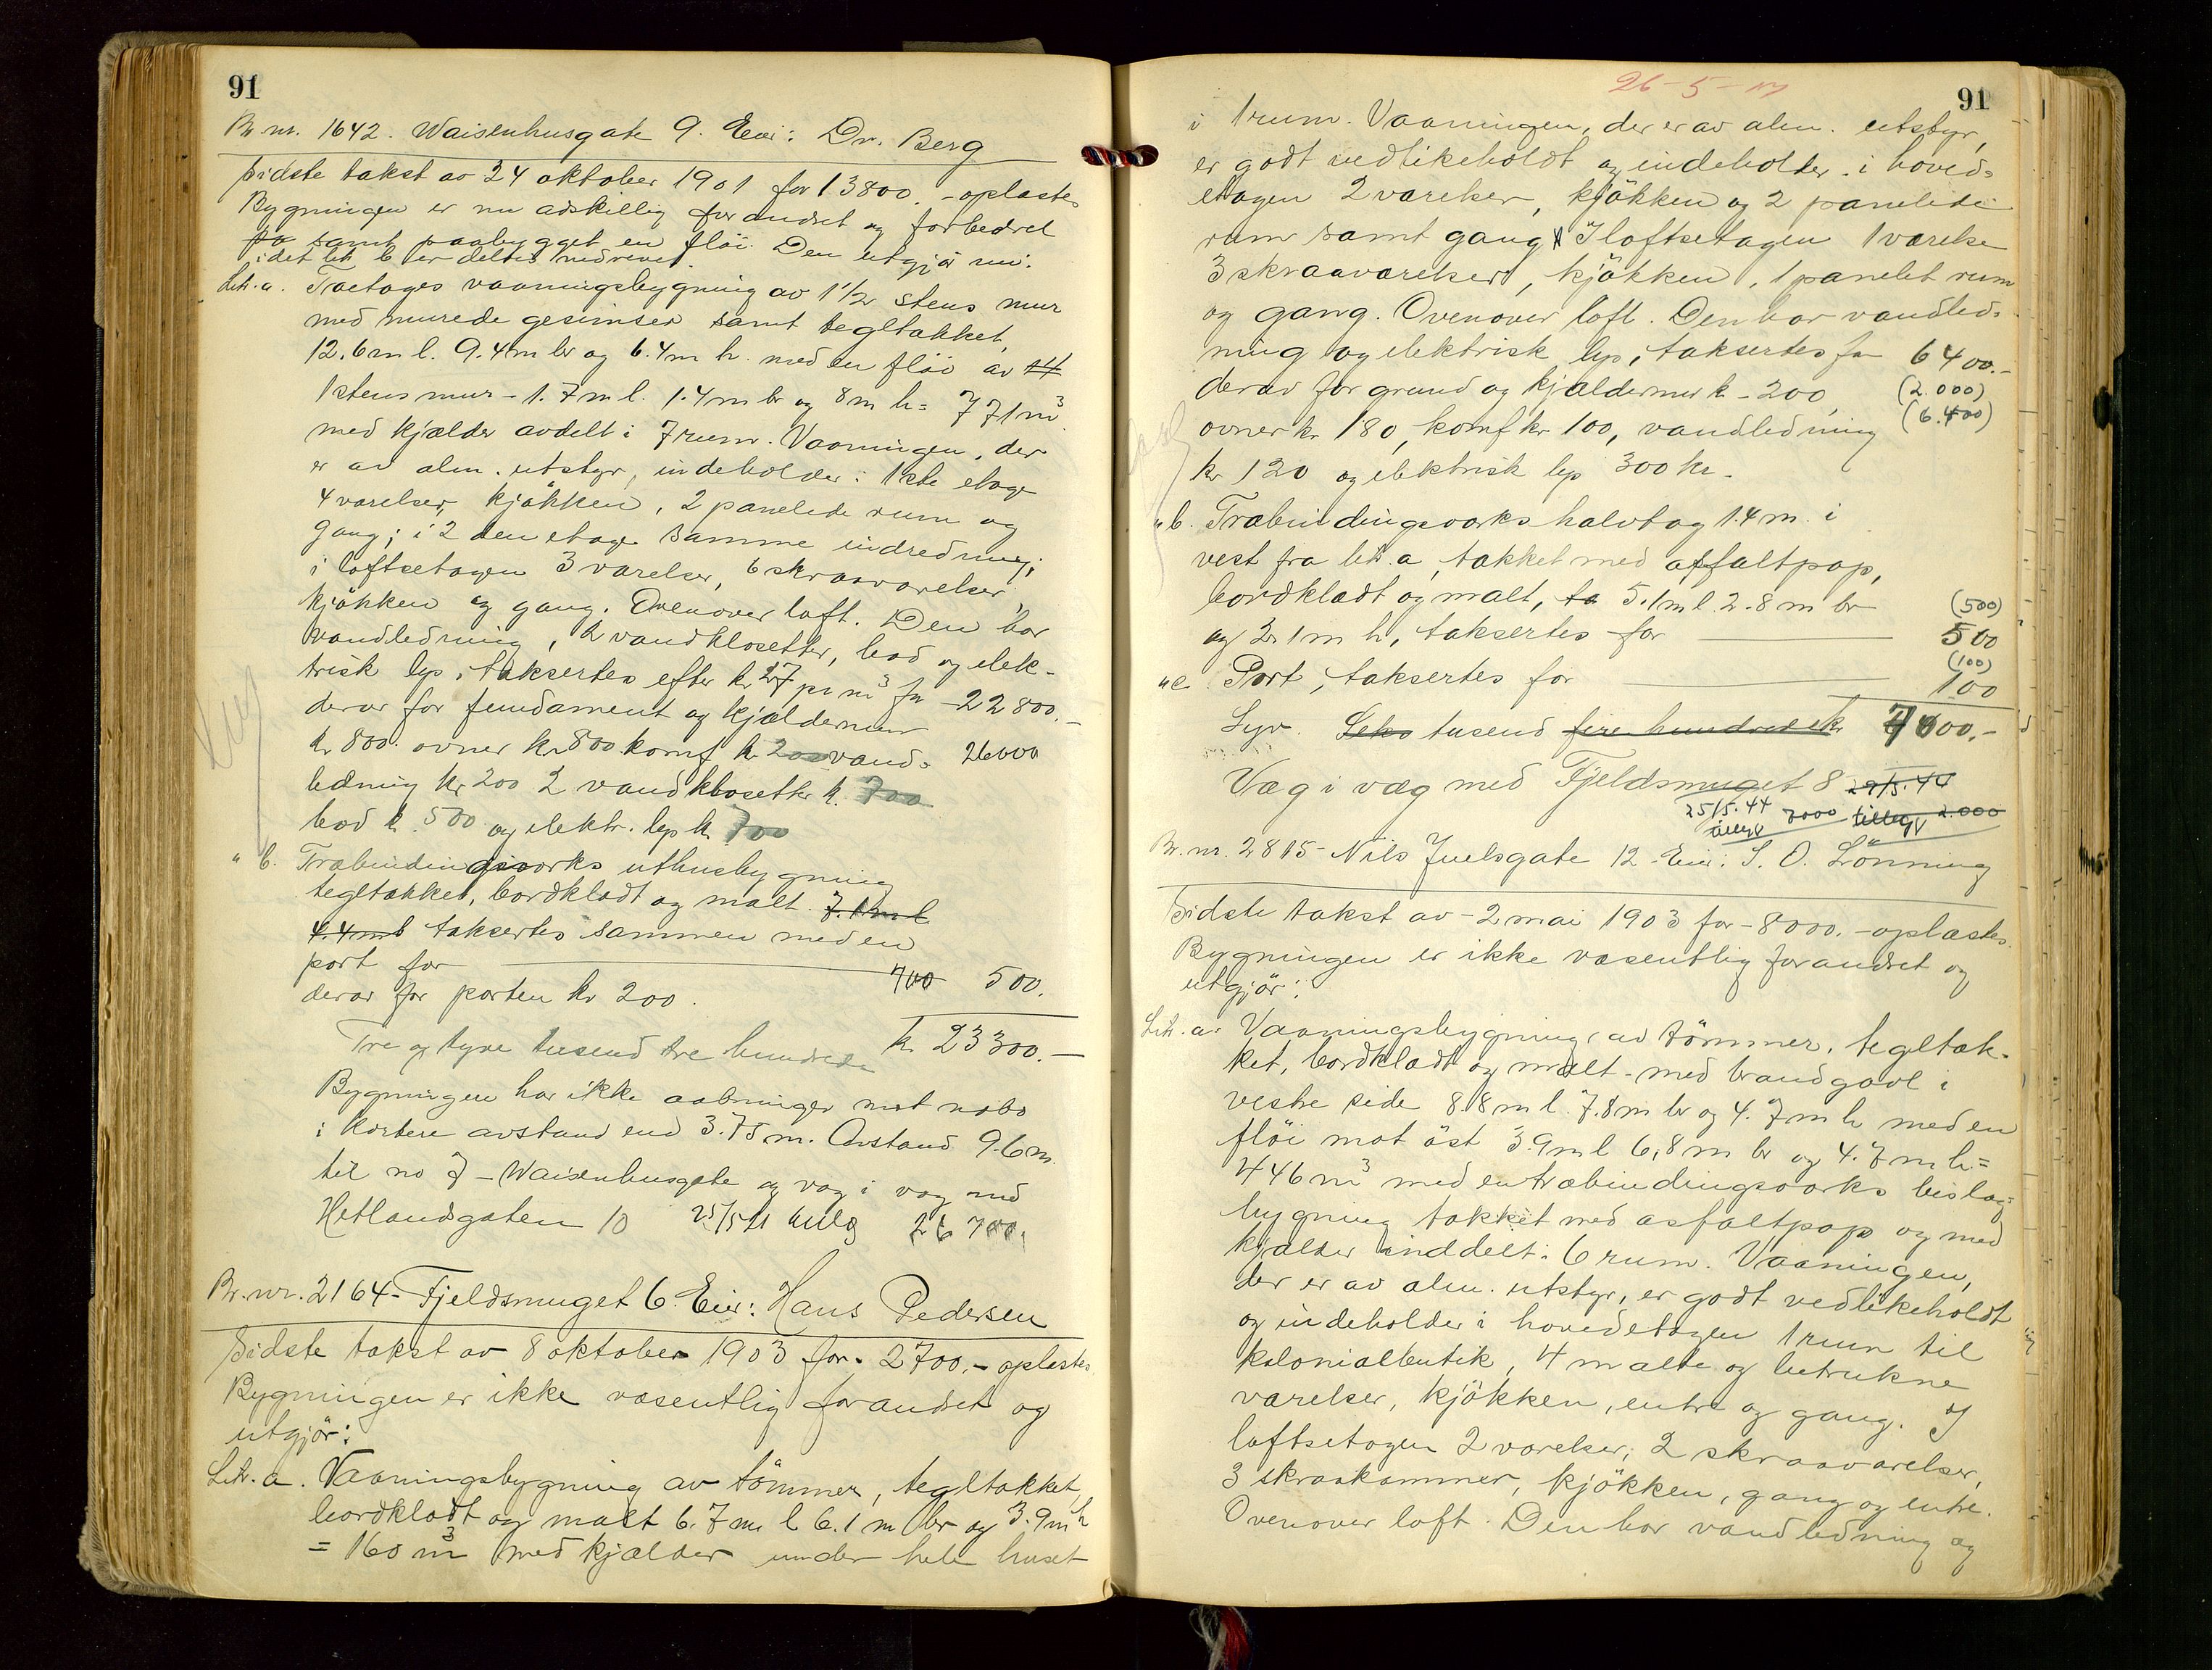 91
Br. nr. 1642. Waisenhusgate 9. Eier: Dr. Berg
Sidste takst av 24 oktober 1901 for 13800. - oplæstes
Bygningen er nu adskillig forandret og forbedret
samt paabygget en flöi. Den utgjör nu:
idet litr b er deltes nedrevet.
Litr. a. Toetages vaaningsbygning av 1 1/2 stens mur
med murede gesimser samt tegltækket,
12.6 m l. 9.4 m br og 6.4 m h. med en flöi av
1 stens mur - 1.7 m l. 1.4 m br og 8 m h = 771 m³
med kjælder avdelt i 7 rum. Vaaningen, der
er av alm. utstyr, indeholder: 1ste etage
4 værelser, kjökken, 2 panelede rum og
gang; i 2den etage samme indredning;
i loftsetagen 3 værelser, 6 skraaværelser,
kjökken og gang. Ovenover loft. Den har
vandledning, 2 vandklosetter, bad og elek-
trisk lys, taksertes efter kr 27 pr m³ for - 22800.-
derav for fundament og kjældermur
kr 800. ovner kr 800. komf kr 200 vand- 26000
ledning kr 200 2 vandklosetter kr. 700
bad kr. 500 og elektr. lys kr 700
" b. Træbindingsværks uthusbygning
tegltækket, bordklædt og malt. 7.1 m l
4.4 m b taksertes sammen med en
port for 700 500.
derav for porten kr 200.
Tre og tyve tusend tre hundrede kr. 23300.-
Bygningen har ikke aabninger mot nabo
i kortere avstand end 3.75 m. Avstand 9.6 m.
til no 7 - Waisenhusgate og væg i væg med
Hetlandsgaten 10 25/5 41 26 700.
Br. nr. 2164 - Fjeldsmuget 6. Eier: Hans Pedersen
Sidste takst av 8 oktober 1903 for - 2700.- oplæstes.
Bygningen er ikke væsentlig forandret og
utgjör:
Litr. a. Vaaningsbygning av tömmer, tegltækket,
bordklædt og malt 6.7 m l 6.1 m br og 3.9 m h
= 160 m³ med kjælder under hele huset
26-5-
91
i 1 rum. Vaaningen, der er av alm. utstyr,
er godt vedlikeholdt og indeholder i hoved-
etagen 2 værelser, kjökken og 2 panelede
rum samt gang. I loftsetagen 1 værelse
3 skraaværelser, kjökken, 1 panelet rum
og gang. Ovenover loft. Den har vandled-
ning og elektrisk lys, taksertes for 6400.-
derav for grund og kjældermur kr - 200, (2.000)
ovner kr 180, komf kr 100, vandledning (6.400)
kr 120 og elektrisk lys 300 kr.
" b. Træbindingsværks halvtag 1.4 m. i
vest fra litr. a, tækket med asfaltpap,
bordklædt og malt, 5.1 m l 2.8 m br (500)
og 2.1 m h, taksertes for 500
(100)
" c. Port, taksertes for 100
Syv Seks tusend fire hundrede kr 7000.-
Væg i væg med Fjeldsmuget 8 29/5.44
25/5.44 7000 tillegg 2.000
tillegg
Br. nr. 2815 - Nils Juelsgate 12 - Eier: S. O. Lönning
Sidste takst av - 2 mai 1903 for - 8000. - oplæstes.
Bygningen er ikke væsentlig forandret og
utgjör:
Litr. a. Vaaningsbygning av tömmer, tegltæk-
ket, bordklædt og malt - med brandgavl i
vestre side 8.8 m l 7.8 m br og 4.7 m h med en
flöi mot öst 3.9 m l 6,8 m br og 4.7 m h =
446 m³ med en træbindingsværks bislag-
bygning tækket med asfaltpap og med
kjælder inddelt i 6 rum. Vaaningen,
der er av alm. utstyr, er godt vedlikeholdt
og indeholder i hovedetagen 1 rum til
kolonialbutik, 4 malte og betrukne
værelser, kjökken, entre og gang. I
loftsetagen 2 værelser, 2 skraaværelser,
3 skraakammer, kjökken, gang og entre.
Ovenover loft. Den har vandledning og